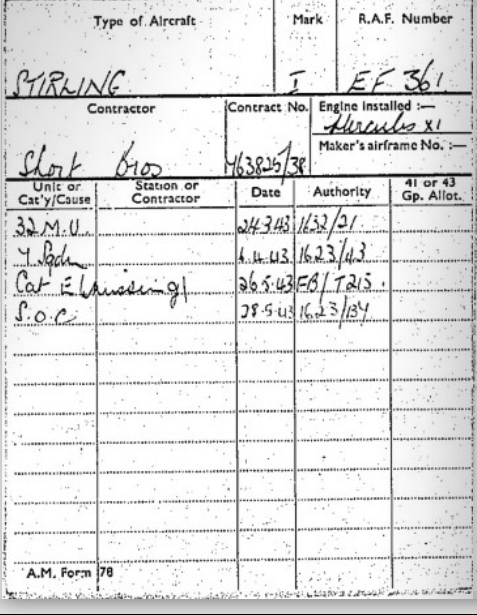 Type of Aircraft Mark R.A.F. Number
STIRLING I EF 361
Contractor Contract No. Engine Installed :—
Hercules XI
Maker's airframe No. :—
Short Bros 763825/38
Unit or Cat'y/Cause Station or Contractor Date Authority 41 or 43 Gp. Allot.
32 M.U. 24.3.43 1632/21
7 Sqdn 4.43 1623/43
Cat E (missing) 26.5.43 FB/T215.
S.O.C 28.5.43 1623/134
A.M. Form 78